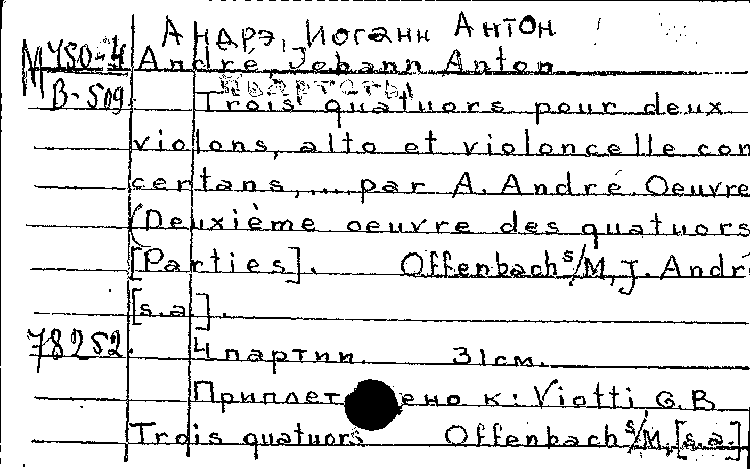 Андрэ, Иоганн Антон
М 450-4 André Johann Anton
Квартеты
В-509 Trois quatuors pour deux
violons, alto et violoncelle con
certans,... par A. André. Oeuvre
(Deuxième oeuvre des quatuors
[Parties]. Offenbach s/M, J. Andr
[s.a].
78252. 4 партии. 31см.
Приплетено к: Viotti G.B
Trois quatuors Offenbach s/M, [s.a.]